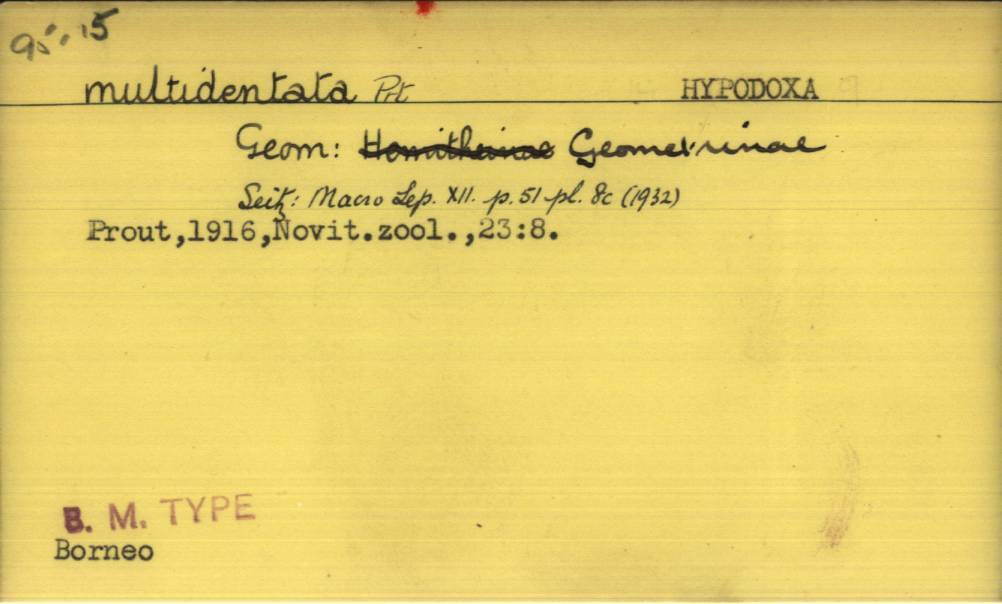 95.15
multidentata Prt HYPODOXA
Geom: Hemitheinae Geometrinae
Seitz: Macro Lep. XII. p. 51 pl. 8c (1932)
Prout,1916,Novit.zool.,23:8.
B. M. TYPE
Borneo